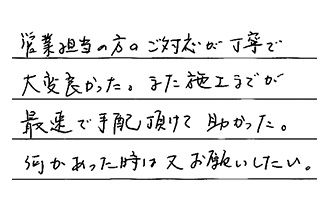 営業担当の方のご対応が丁寧で
大変良かった。また施工までが
最速で手配頂けて助かった。
何かあった時は又お願いしたい。